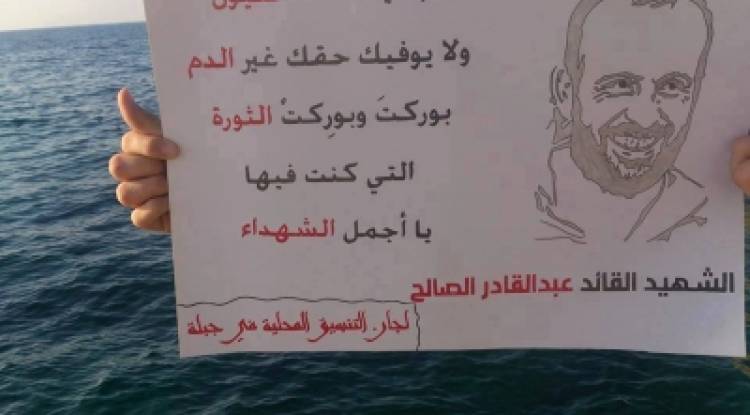 ولا يوفيك حقك غير الدم
بوركتَ وبورِكتْ الثورة
التي كنت فيها
يا أجمل الشهداء
الشهيد القائد عبدالقادر الصالح
لجان التنسيق المحلية في جبلة